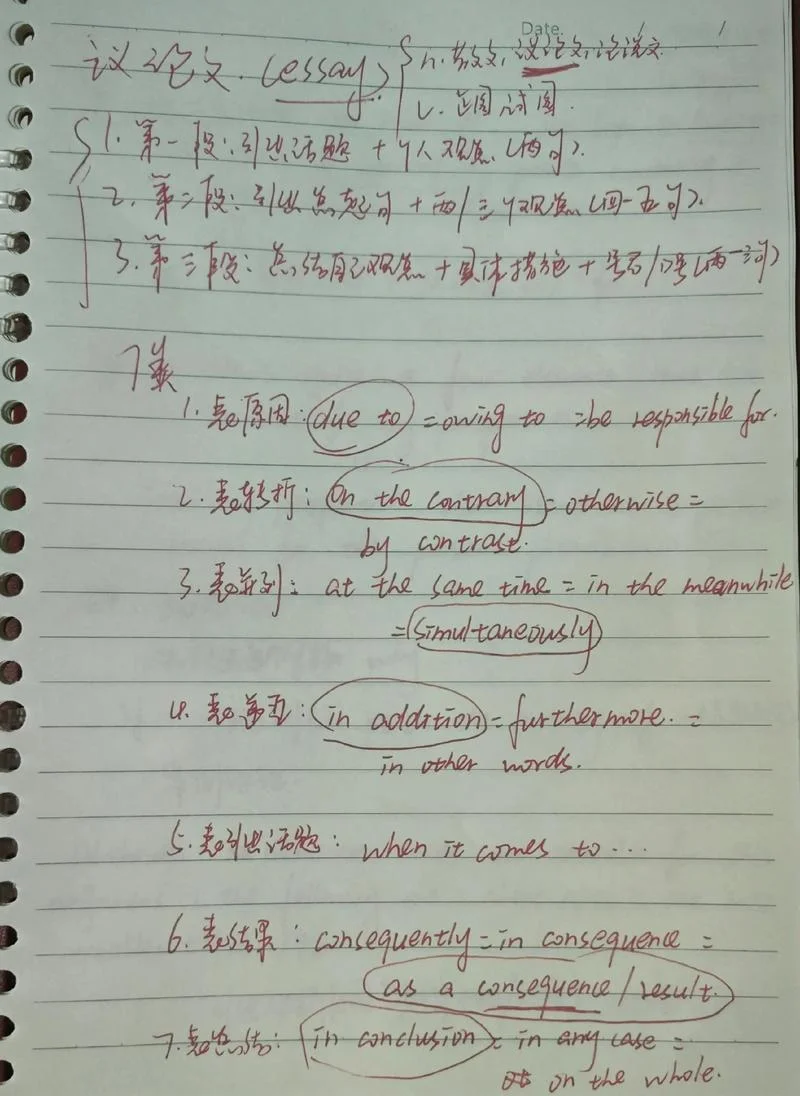 Date / /
议论文.(essay) { n. 散文,议论文,论说文
v. 企图,试图.
1. 第一段:引出话题 + 个人观点(两句).
2. 第二段:引出总起句 + 两/三个观点(四-五句).
3. 第三段:总结自己观点 + 具体措施 + 号召/口号(两-三句)
7类
1. 表原因: due to = owing to = be responsible for.
2. 表转折: on the contrary = otherwise =
by contrast.
3. 表并列: at the same time = in the meanwhile
= simultaneously
4. 表递进: in addition = furthermore. =
in other words.
5. 表引出话题: when it comes to ...
6. 表结果: consequently = in consequence =
as a consequence / result.
7. 表总结: in conclusion = in any case =
on the whole.